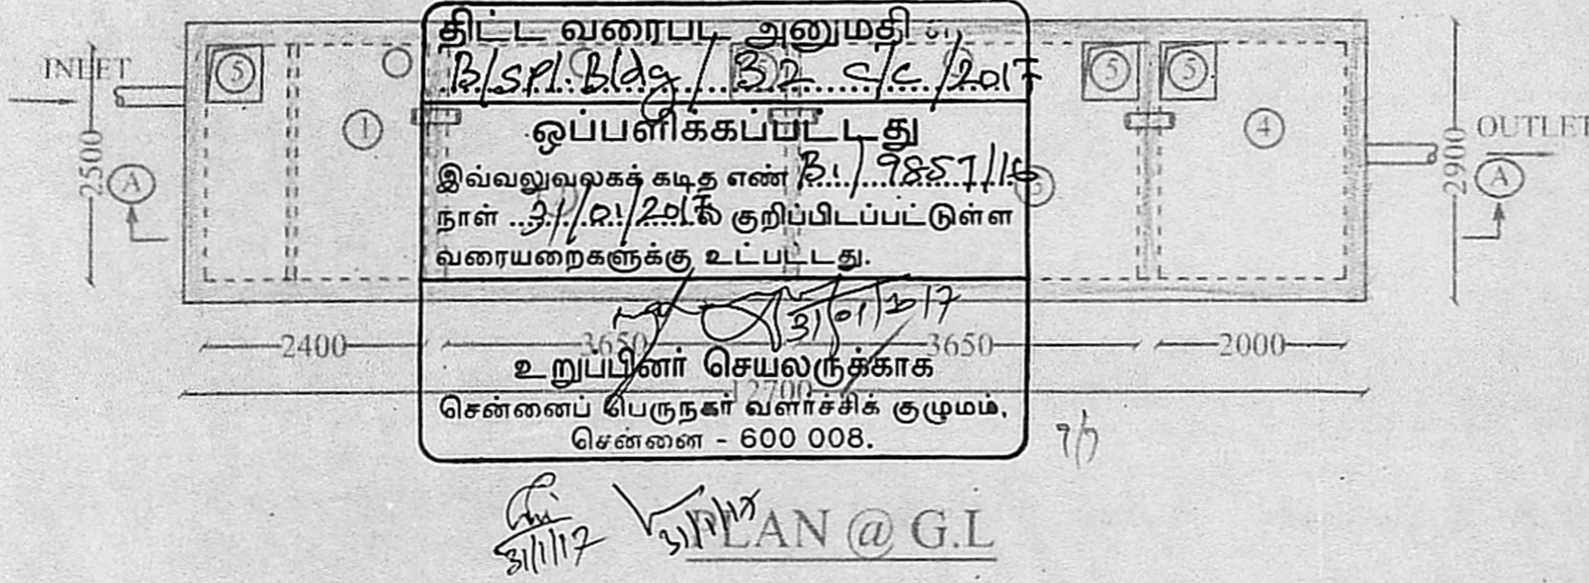 திட்ட வரைபட அனுமதி
B/Spl. Bldg/ 32 C/C /2017
ஒப்பளிக்கப்பட்டது
இவ்வலுவலகக் கடித எண் B1/9857/16
நாள் 31/01/2017ல் குறிப்பிடப்பட்டுள்ள
வரையறைகளுக்கு உட்பட்டது.
31/01/2017
உறுப்பினர் செயலருக்காக
சென்னைப் பெருநகர் வளர்ச்சிக் குழுமம்,
சென்னை - 600 008.
INLET
5
5
5
1
4
OUTLET
2500
A
2900
A
2400
3650
3650
2000
12700
31/1/17
31/1/17
PLAN @ G.L